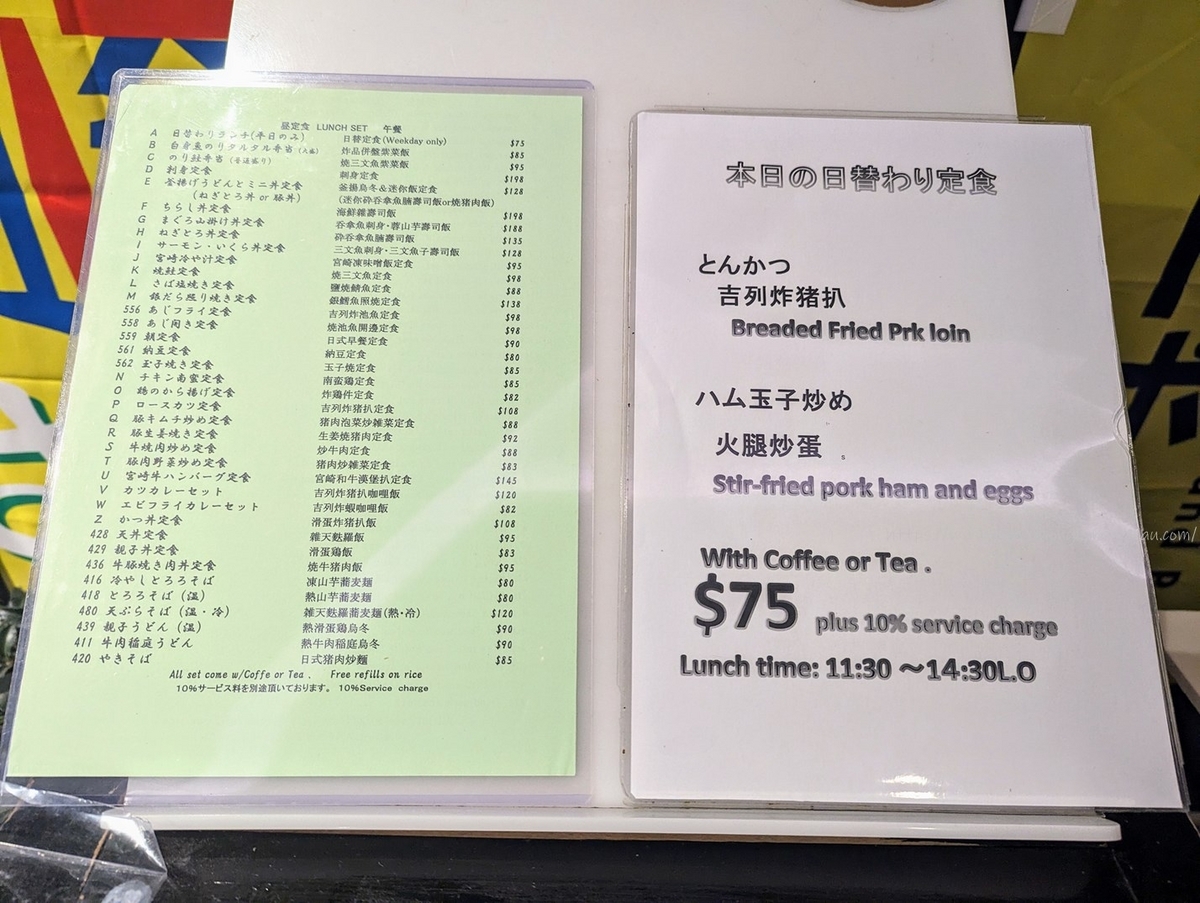 昼定食 LUNCH SET 午餐
A 日替わりランチ(平日のみ) 日替定食(Weekday only) $75
B 白身魚のりタルタル弁当 (大盛) 炸品併盤紫菜飯 $85
C のり鮭弁当 (普通盛り) 燒三文魚紫菜飯 $95
D 刺身定食 刺身定食 $198
E 釜揚げうどんとミニ丼定食 釜揚烏冬&迷你飯定食 $128
(ねぎとろ丼 or 豚丼) (迷你砕吞拿魚腩壽司飯or燒猪肉飯)
F ちらし丼定食 海鮮雜壽司飯 $198
G まぐろ山掛け丼定食 吞拿魚刺身·蓉山芋壽司飯 $188
H ねぎとろ丼定食 砕吞拿魚腩壽司飯 $135
I サーモン・いくら丼定食 三文魚刺身·三文魚子壽司飯 $128
J 宮崎冷や汁定食 宮崎凍味噌飯定食 $95
K 焼鮭定食 燒三文魚定食 $98
L さば塩焼き定食 鹽燒鯖魚定食 $88
M 銀だら照り焼き定食 銀鱈魚照燒定食 $138
556 あじフライ定食 吉列炸池魚定食 $98
558 あじ開き定食 燒池魚開邊定食 $98
559 朝定食 日式早餐定食 $90
561 納豆定食 納豆定食 $80
562 玉子焼き定食 玉子燒定食 $85
N チキン南蛮定食 南蛮鶏定食 $85
O 鶏のから揚げ定食 炸鶏件定食 $82
P ロースカツ定食 吉列炸猪扒定食 $108
Q 豚キムチ炒め定食 猪肉泡菜炒雑菜定食 $88
R 豚生姜焼き定食 生姜燒猪肉定食 $92
S 牛焼肉炒め定食 炒牛肉定食 $88
T 豚肉野菜炒め定食 猪肉炒雑菜定食 $83
U 宮崎牛ハンバーグ定食 宮崎和牛漢堡扒定食 $145
V カツカレーセット 吉列炸猪扒咖喱飯 $120
W エビフライカレーセット 吉列炸蝦咖喱飯 $82
Z かつ丼定食 滑蛋炸猪扒飯 $108
428 天丼定食 雑天麩羅飯 $95
429 親子丼定食 滑蛋鶏飯 $83
436 牛豚焼き肉丼定食 燒牛猪肉飯 $95
416 冷やしとろろそば 凍山芋蕎麦麺 $80
418 とろろそば (温) 熱山芋蕎麦麺 $80
480 天ぷらそば (温・冷) 雑天麩羅蕎麦麺(熱·冷) $120
439 親子うどん (温) 熱滑蛋鶏烏冬 $90
411 牛肉稲庭うどん 熱牛肉稲庭烏冬 $90
420 やきそば 日式猪肉炒麺 $85
All set come w/Coffe or Tea . Free refills on rice
10%サービス料を別途頂いております。 10%Service charge
本日の日替わり定食
とんかつ
吉列炸猪扒
Breaded Fried Prk loin
ハム玉子炒め
火腿炒蛋 s
Stir-fried pork ham and eggs
With Coffee or Tea .
$75 plus 10% service charge
Lunch time: 11:30 ～14:30L.O
au.com/